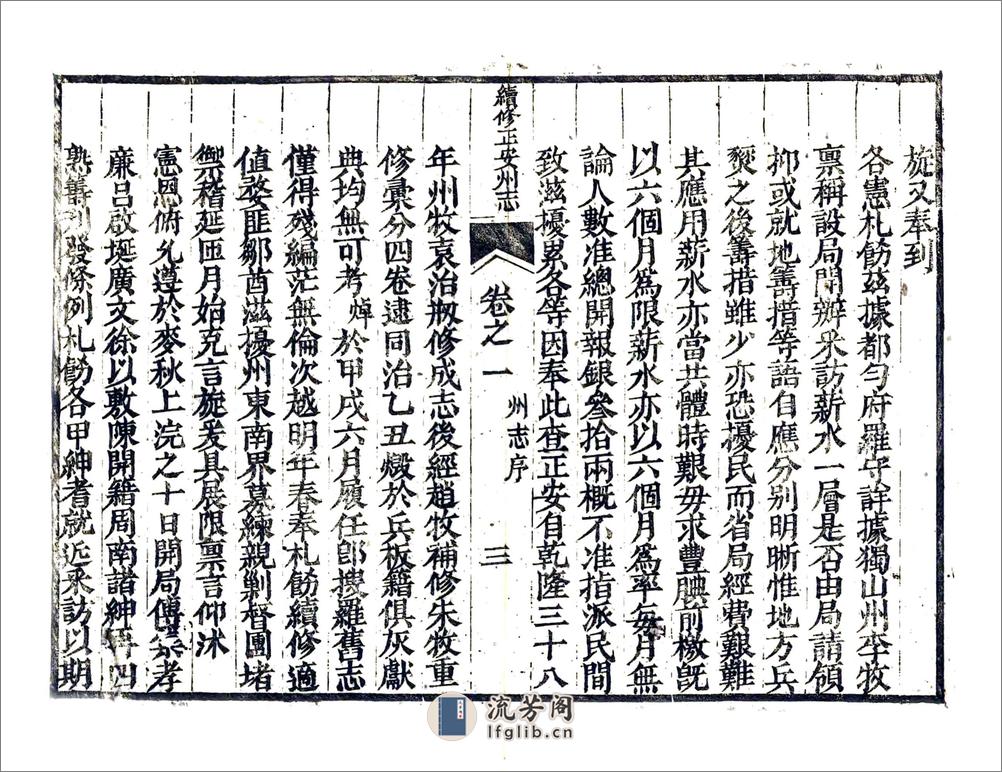 旋又奉到
各憲札飭茲據都勻府羅守詳據獨山州李牧
禀稱設局開辦采訪薪水一層是否由局請領
抑或就地籌措等語自應分别明晰惟地方兵
燹之後籌措雖少亦恐擾民而省局經費艱難
其應用薪水亦當共體時艱毋求豐腆前檄旣
以六個月爲限薪水亦以六個月爲率每月無
論人數准總開報銀叅拾兩概不准指派民間
致滋擾累各等因奉此查正安自乾隆三十八
續修正安州志
卷之一
州志序
三
年州牧袁治剏修成志後經趙牧補修朱牧重
修彙分四卷逮同治乙丑燬於兵板籍俱灰獻
典均無可考焯於甲戌六月履任卽搜羅舊志
僅得殘編茫無倫次越明年春奉札飭續修適
値婺匪鄒酋滋擾州東南界募練親剿督團堵
禦稽延匝月始克言旋爰具展限禀言仰沐
憲恩俯允遵於麥秋上浣之十日開局傅 孝
廉呂啟 廣文徐以敷陳開籍周南諸紳再四
熟籌刊發條例札飭各甲紳耆就近采訪以期
流芳阁
lfglib.cn